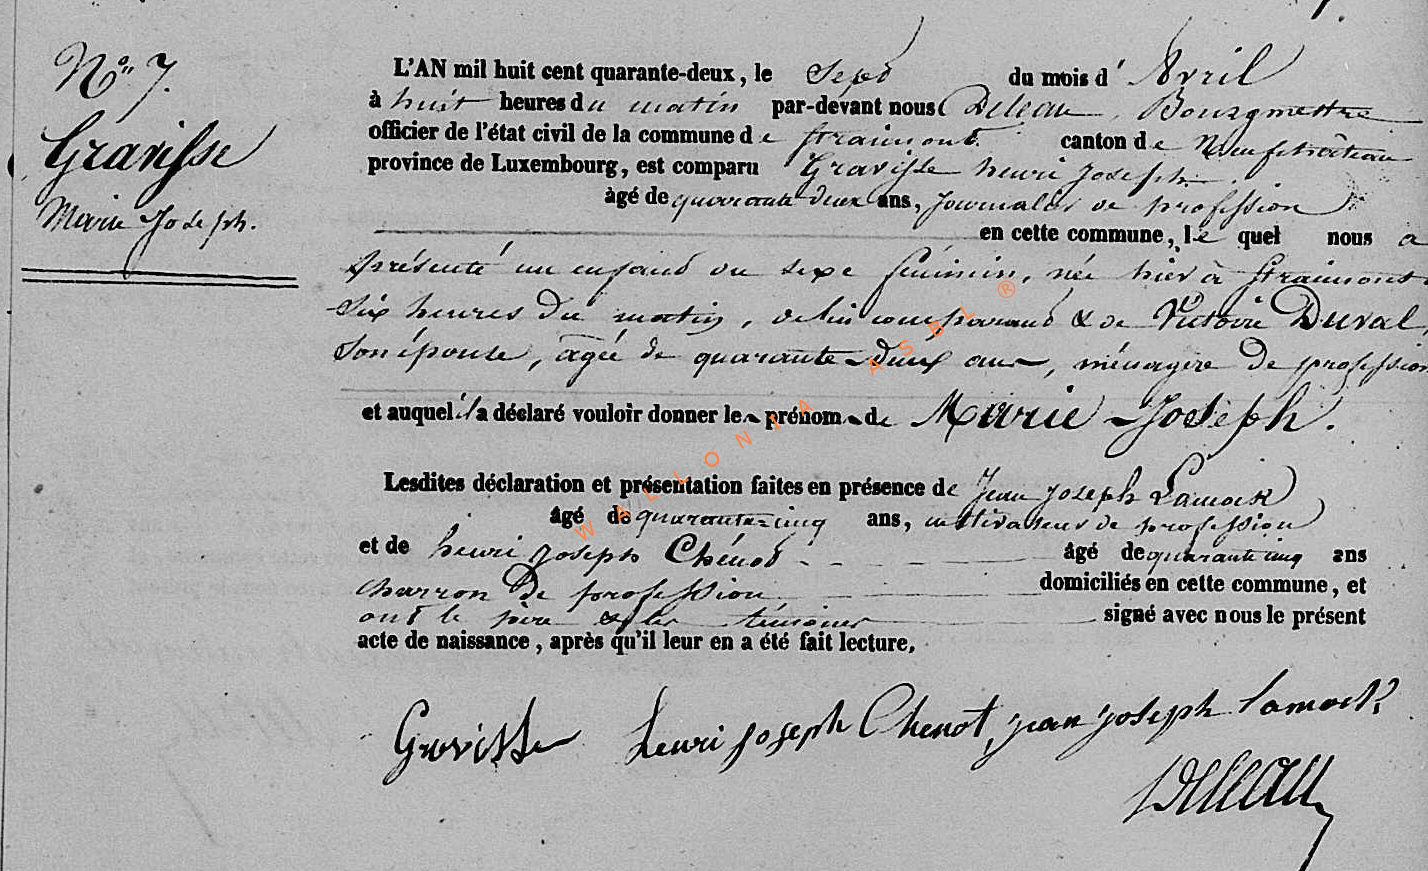 N° 7.
Gravisse
Marie Joseph.
L'AN mil huit cent quarante-deux, le Sept du mois d' Avril
à huit heures du matin par-devant nous Deleau, Bourgmestre
officier de l'état civil de la commune de Straimont canton de Neufchâteau
province de Luxembourg, est comparu Gravisse henri Joseph
àgé de quarante deux ans, Journalier de profession
en cette commune, le quel nous a
présenté un enfant du sexe féminin, née hier à Straimont
Six heures du matin, de lui comparant & de Victoire Duval
Son épouse, âgée de quarante-deux ans, ménagère de profession
et auquel il a déclaré vouloir donner les prénoms de Marie-Joseph.
Lesdites déclaration et présentation faites en présence de Jean Joseph Lamock
âgé de quarante-cinq ans, cultivateur de profession
et de henri joseph Chénot âgé de quarante cinq ans
charron de profession domiciliés en cette commune, et
ont le père & les témoins signé avec nous le présent
acte de naissance, après qu'il leur en a été fait lecture.
Gravisse henri joseph Chenot, jean joseph lamock
Deleau
WALLONIA ASBL ®